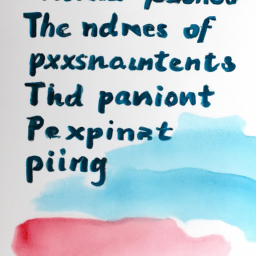 The ndmes of
pxxsnauntents
Thd paniont
Pexpinat
piing